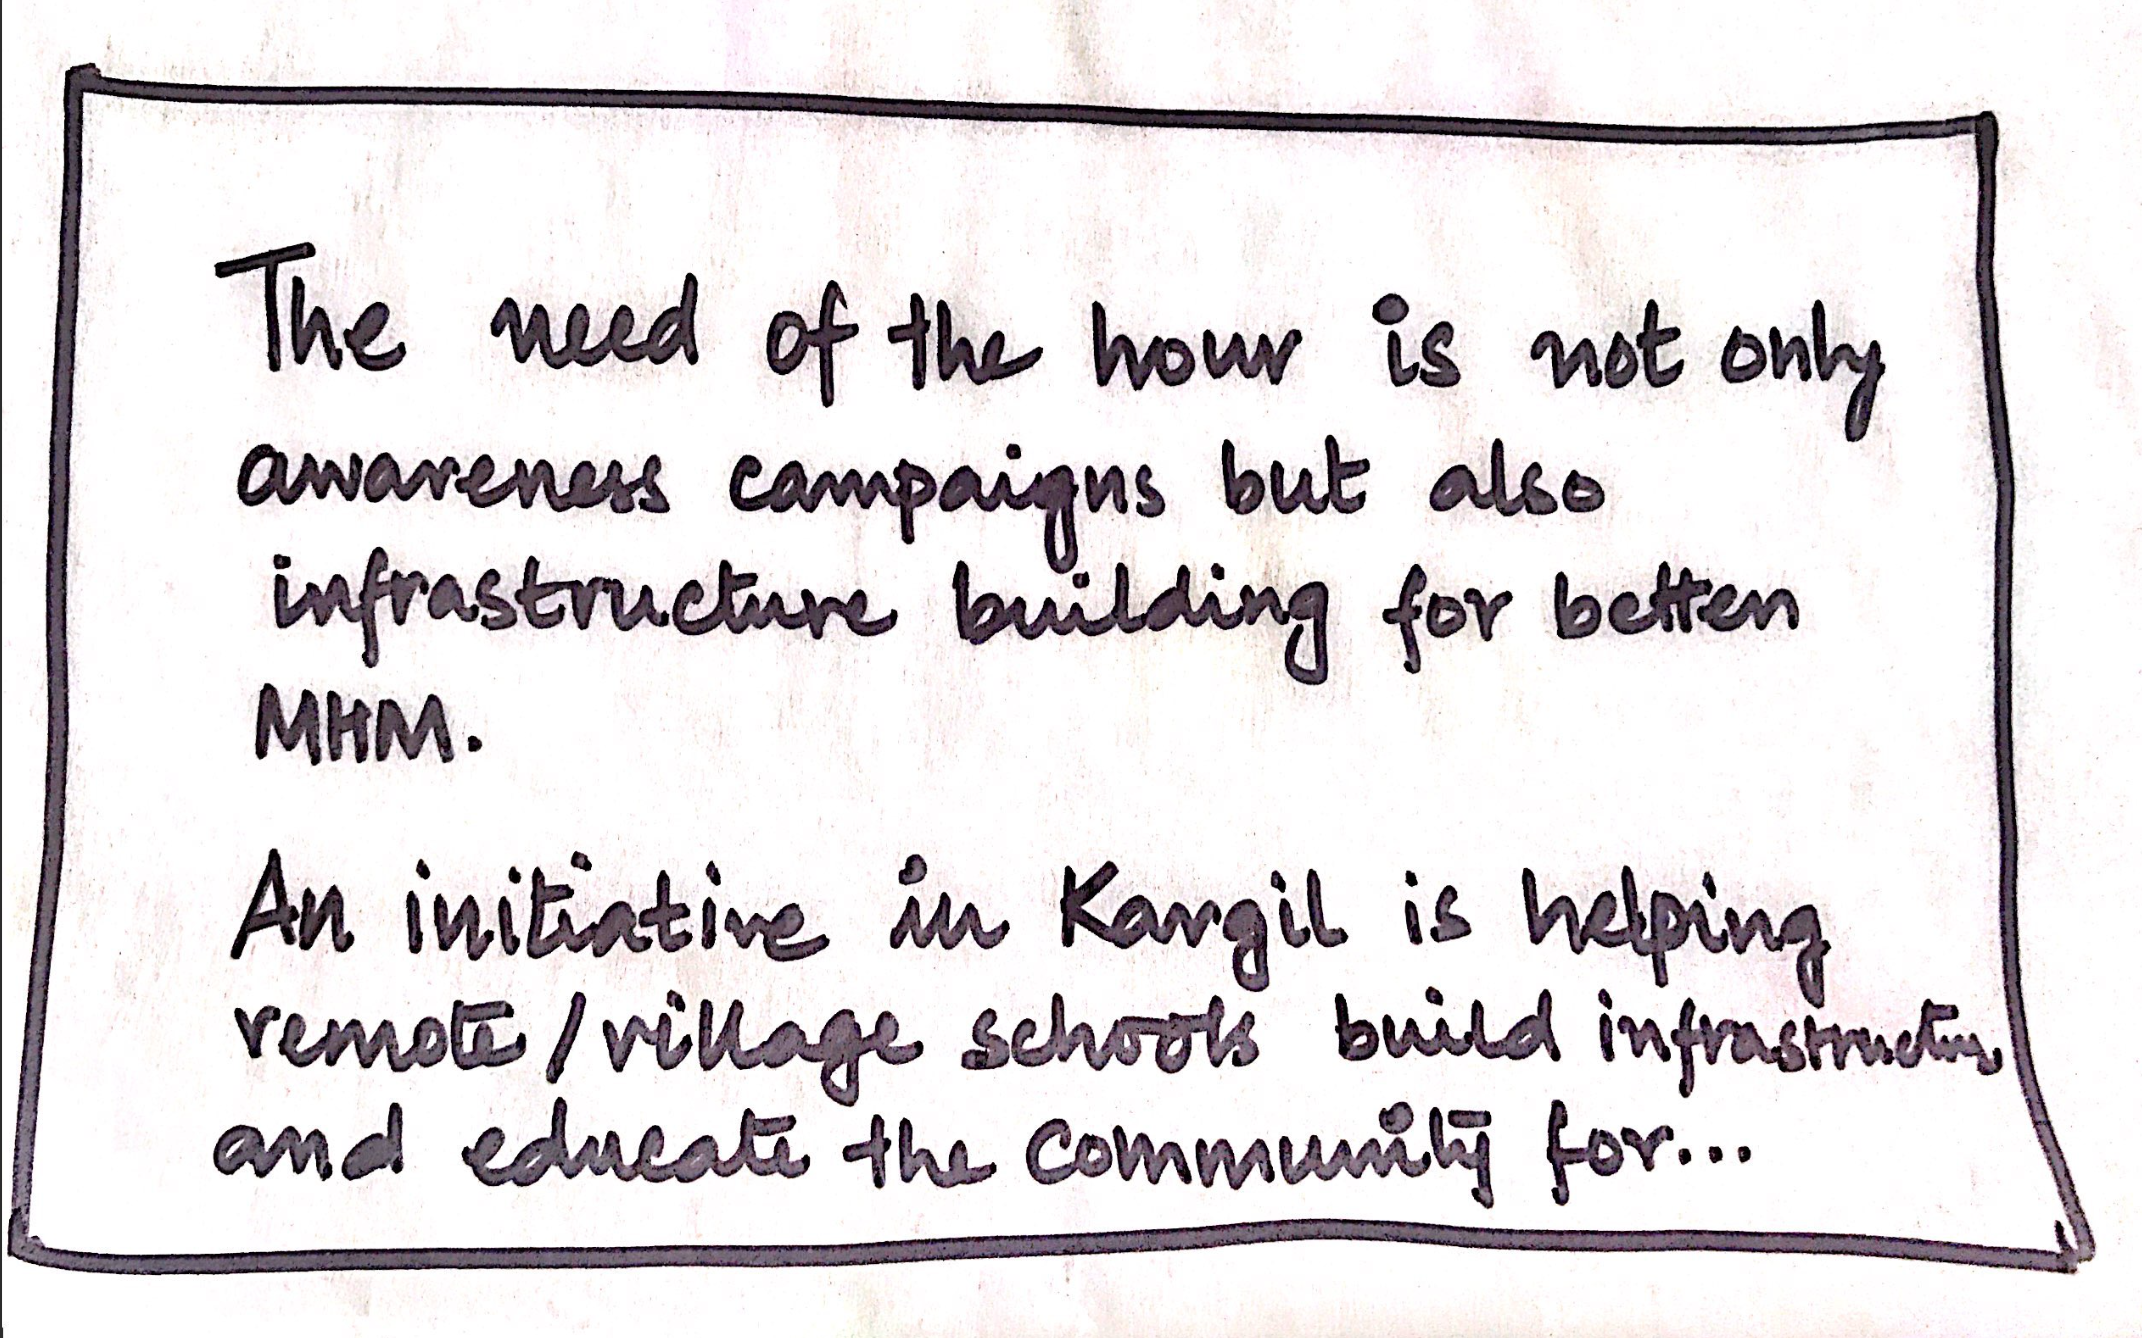 The need of the hour is not only
awareness campaigns but also
infrastructure building for better
MHM.
An initiative in Kargil is helping
remote/village schools build infrastructure
and educate the community for...